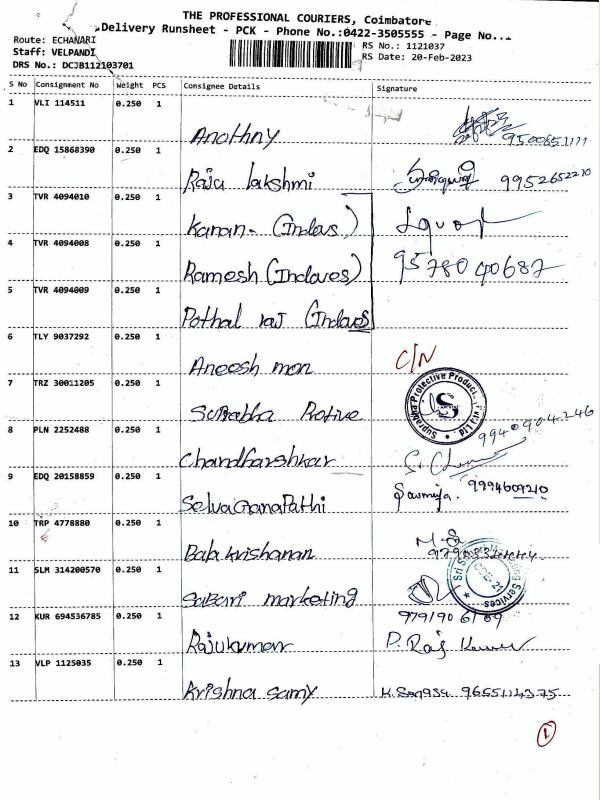 THE PROFESSIONAL COURIERS, Coimbatore
Delivery Runsheet - PCK - Phone No.:0422-3505555 - Page No...
Route: ECHANARI
RS No.: 1121037
Staff: VELPANDI
RS Date: 20-Feb-2023
DRS No.: DCJB112103701
S No Consignment No Weight PCS Consignee Details Signature
1 VLI 114511 0.250 1
Anothny 9500651111
2 EDQ 15868390 0.250 1
Raja lakshmi 9952652210
3 TVR 4094010 0.250 1
Kanan- (Indavs.)
4 TVR 4094008 0.250 1
Ramesh (Indaves) 9578040687
5 TVR 4094009 0.250 1
Pothal raj (Indaves)
6 TLY 9037292 0.250 1
Aneesh mon C/N
7 TRZ 30011205 0.250 1
Suprabha Protective Product Pvt Ltd.
S
Suprabha Protive
8 PLN 2252488 0.250 1
9940904246
Chandharshkar
9 EDQ 20158859 0.250 1
SelvaGanaPathi Sowmiya. 9994609210
10 TRP 4778880 0.250 1
Balakrishanan
11 SLM 314200570 0.250 1
Sabari marketing
Services
12 KUR 694536785 0.250 1
Rajukumar P. Raj Kumar
13 VLP 1125035 0.250 1
Krishna Samy 9655114375
1